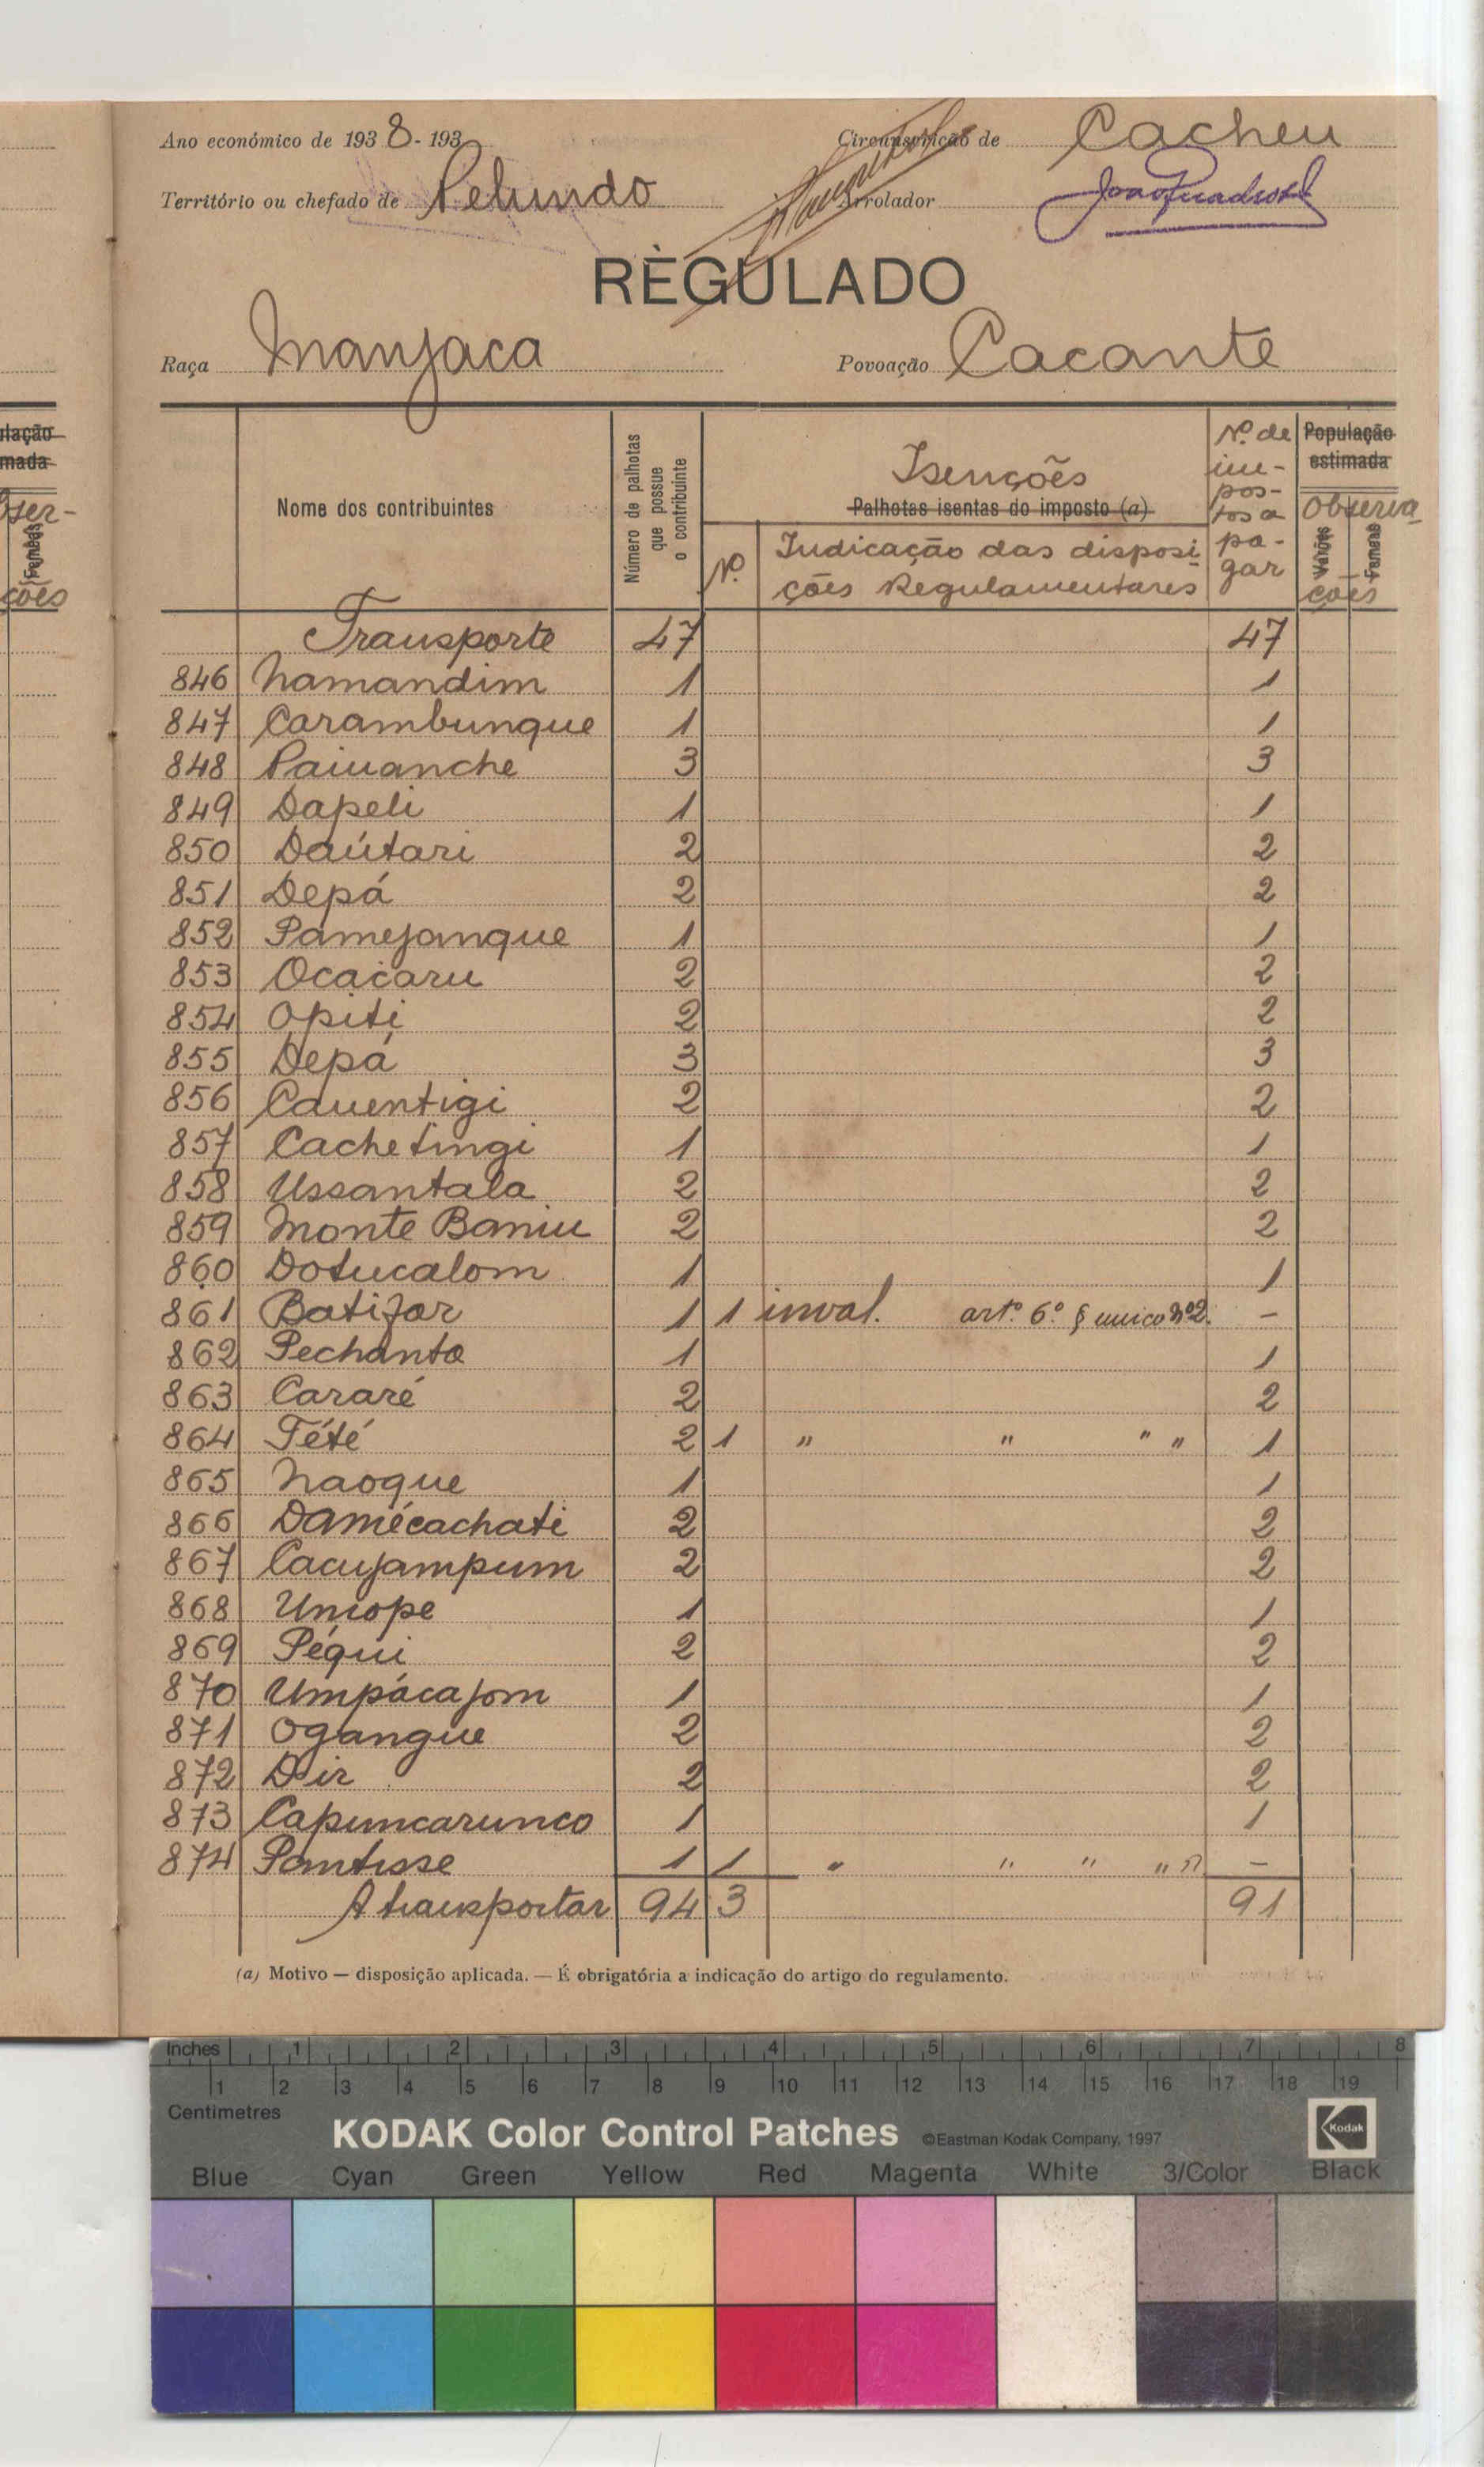 Ano económico de 1938-193
Circunscrição de Cacheu
Território ou chefado de Pelundo
Arrolador
REGULADO
Raça Manjaca
Povoação Cacante
Nome dos contribuintes
Número de palhotas que possue o contribuinte
Isenções
Palhotas isentas do imposto (a)
Nº
Indicação das disposições Regulamentares
Nº de impostos a pagar
População estimada
Observações
Varões
Femeas
Transporte 47 47
846 Namandim 1 1
847 Carambunque 1 1
848 Paiuanche 3 3
849 Dapeli 1 1
850 Daútari 2 2
851 Depá 2 2
852 Pamejanque 1 1
853 Ocacaru 2 2
854 Opiti 2 2
855 Depá 3 3
856 Cauentigi 2 2
857 Cachetingi 1 1
858 Ussantala 2 2
859 Monte Baniu 2 2
860 Dotucalom 1 1
861 Batifar 1 1 inval. artº 6º § unico nº2. -
862 Pechanta 1 1
863 Cararé 2 2
864 Tété 2 1 " " " " 1
865 Naoque 1 1
866 Damécachati 2 2
867 Cacujampum 2 2
868 Uniope 1 1
869 Péqui 2 2
870 Umpácajom 1 1
871 Ogangue 2 2
872 Dir 2 2
873 Capuncarunco 1 1
874 Pantisse 1 1 " " " " " -
A transportar 94 3 91
(a) Motivo — disposição aplicada. — É obrigatória a indicação do artigo do regulamento.
Inches 1 2 3 4 5 6 7 8
1 2 3 4 5 6 7 8 9 10 11 12 13 14 15 16 17 18 19
Centimetres
KODAK Color Control Patches ©Eastman Kodak Company, 1997 Kodak
Blue Cyan Green Yellow Red Magenta White 3/Color Black